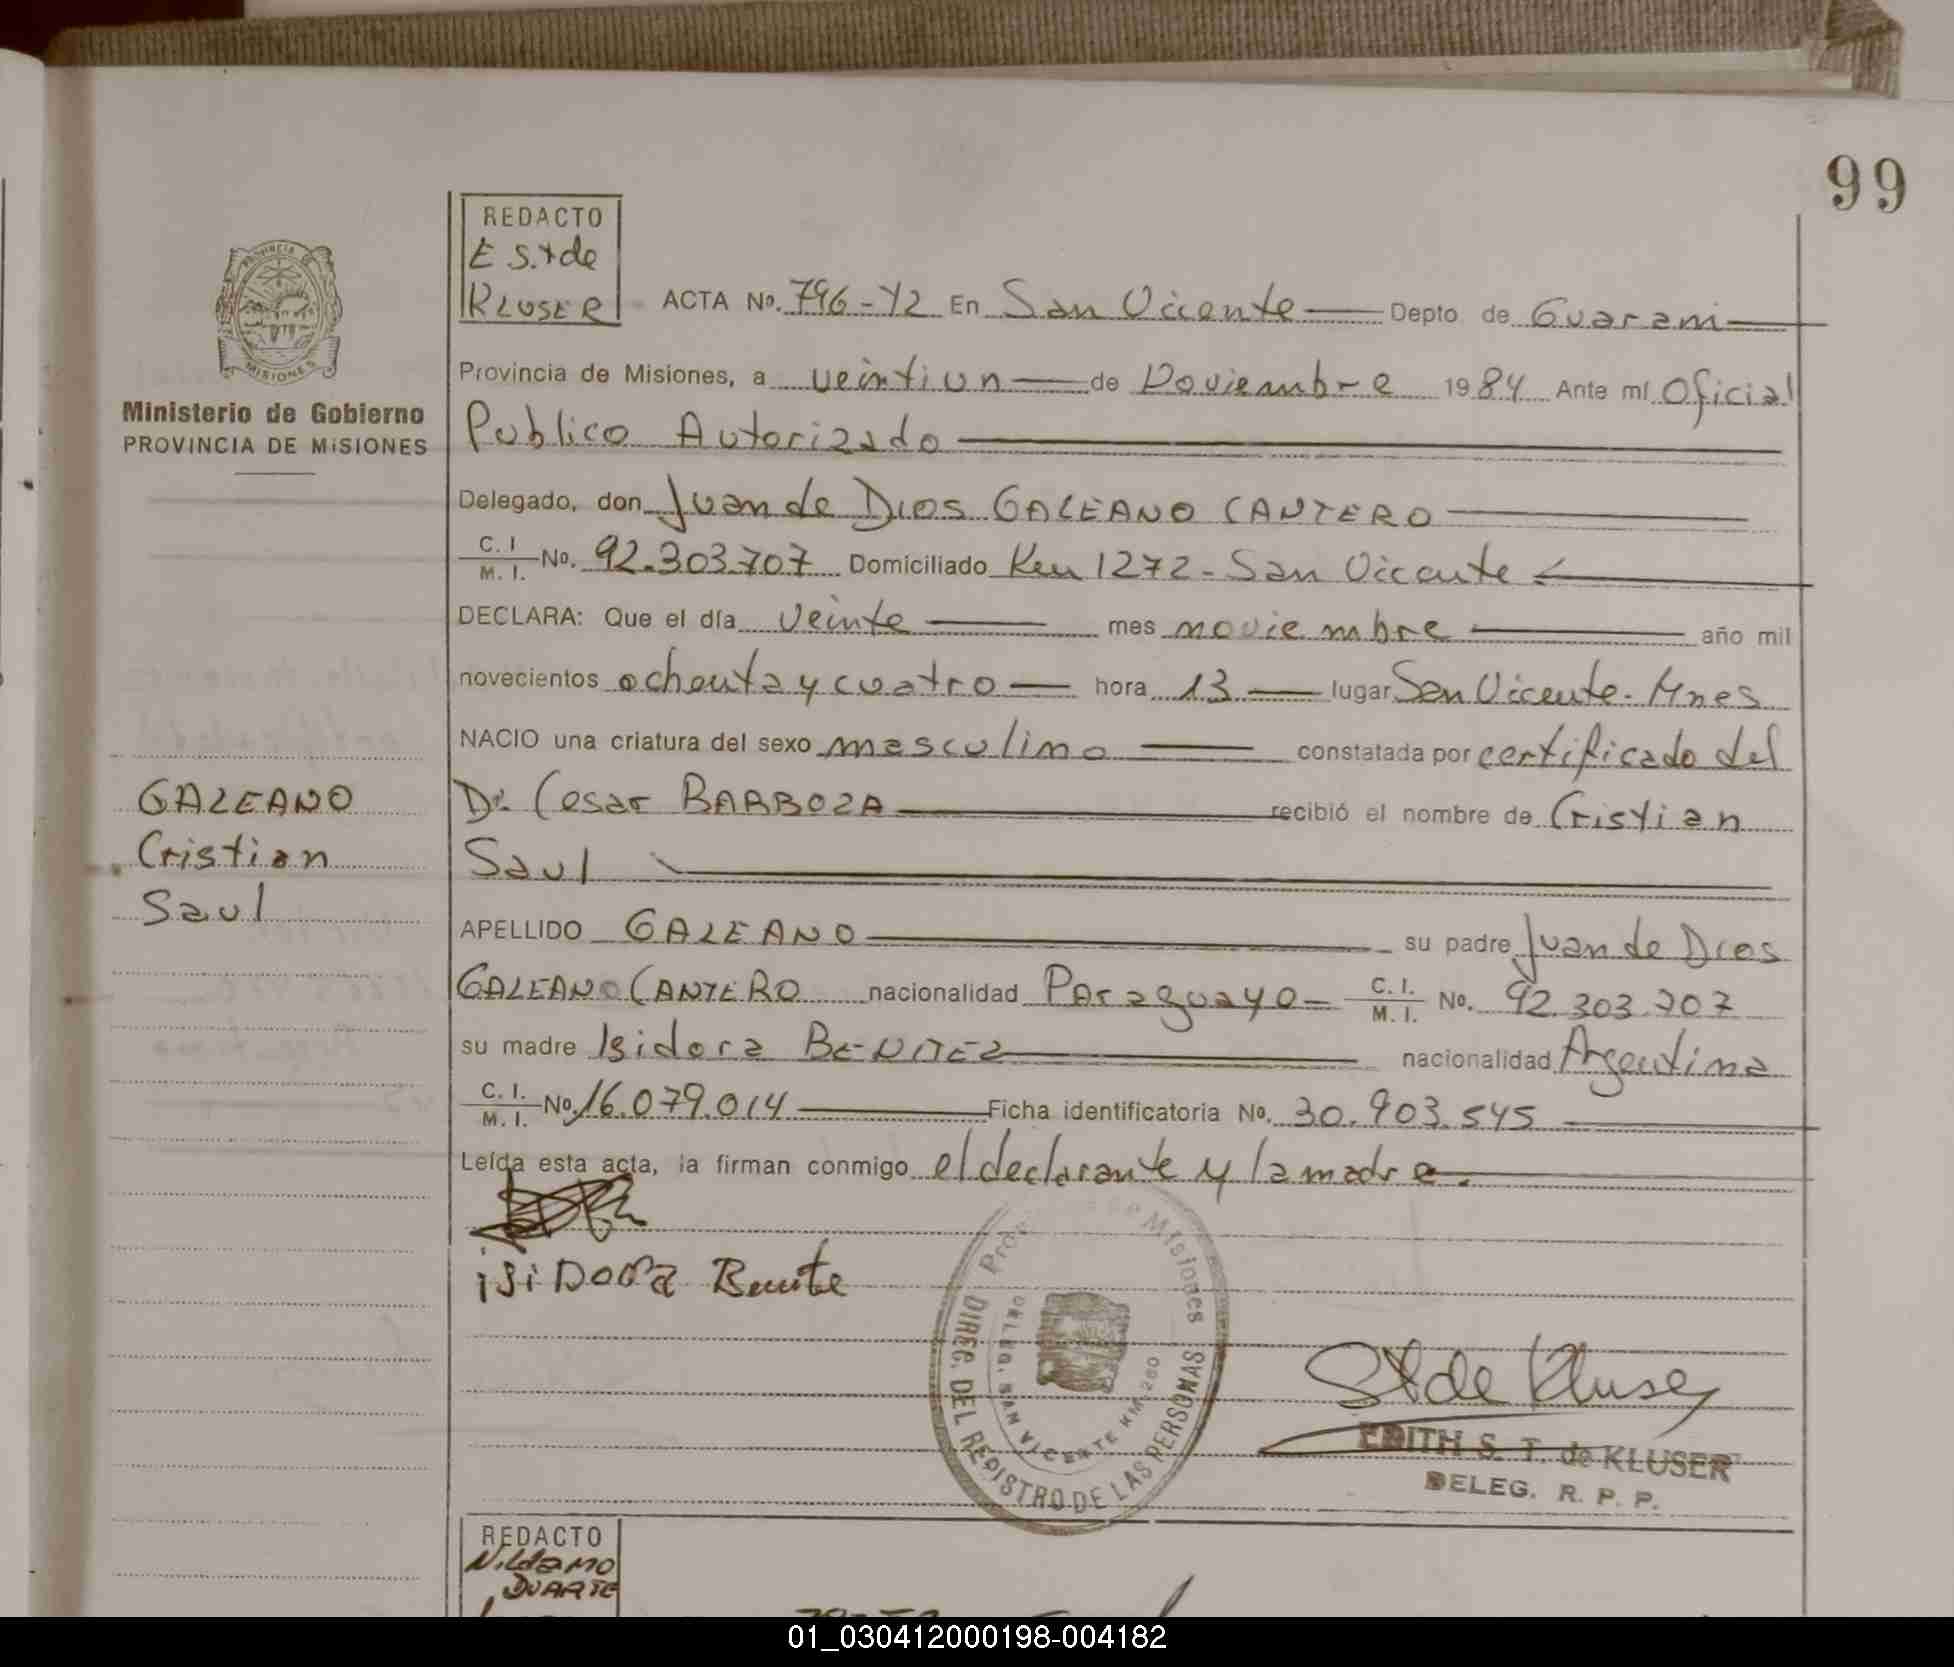 99
REDACTO
E S.T de
KLUSER
PROVINCIA DE
MISIONES
Ministerio de Gobierno
PROVINCIA DE MISIONES
ACTA No. 796-Y2 En San Vicente Depto de Guarani
Provincia de Misiones, a veintiun de Noviembre 1984 Ante mí Oficial
Publico Autorizado
Delegado, don Juan de Dios GALEANO CANTERO
C. I / M. I. No. 92.303.707 Domiciliado Km 1272 - San Vicente
DECLARA: Que el día veinte mes noviembre año mil
novecientos ochenta y cuatro hora 13 lugar San Vicente - Mnes
NACIO una criatura del sexo masculino constatada por certificado del
Dr. Cesar BARBOZA recibió el nombre de Cristian
Saul
GALEANO
Cristian
Saul
APELLIDO GALEANO su padre Juan de Dios
GALEANO CANTERO nacionalidad Paraguayo C. I. / M. I. No. 92.303.707
su madre Isidora BENITEZ nacionalidad Argentina
C. I. / M. I. No. 16.079.014 Ficha identificatoria No. 30.903.545
Leída esta acta, la firman conmigo el declarante y la madre.
iSiDORa Benite
Misiones
DIREC. DEL REGISTRO DE LAS PERSONAS
DELEG. SAN VICENTE KM. 280
St de Kluser
EDITH S. T. de KLUSER
DELEG. R. P. P.
REDACTO
Nildamo
DUARTE
01_030412000198-004182